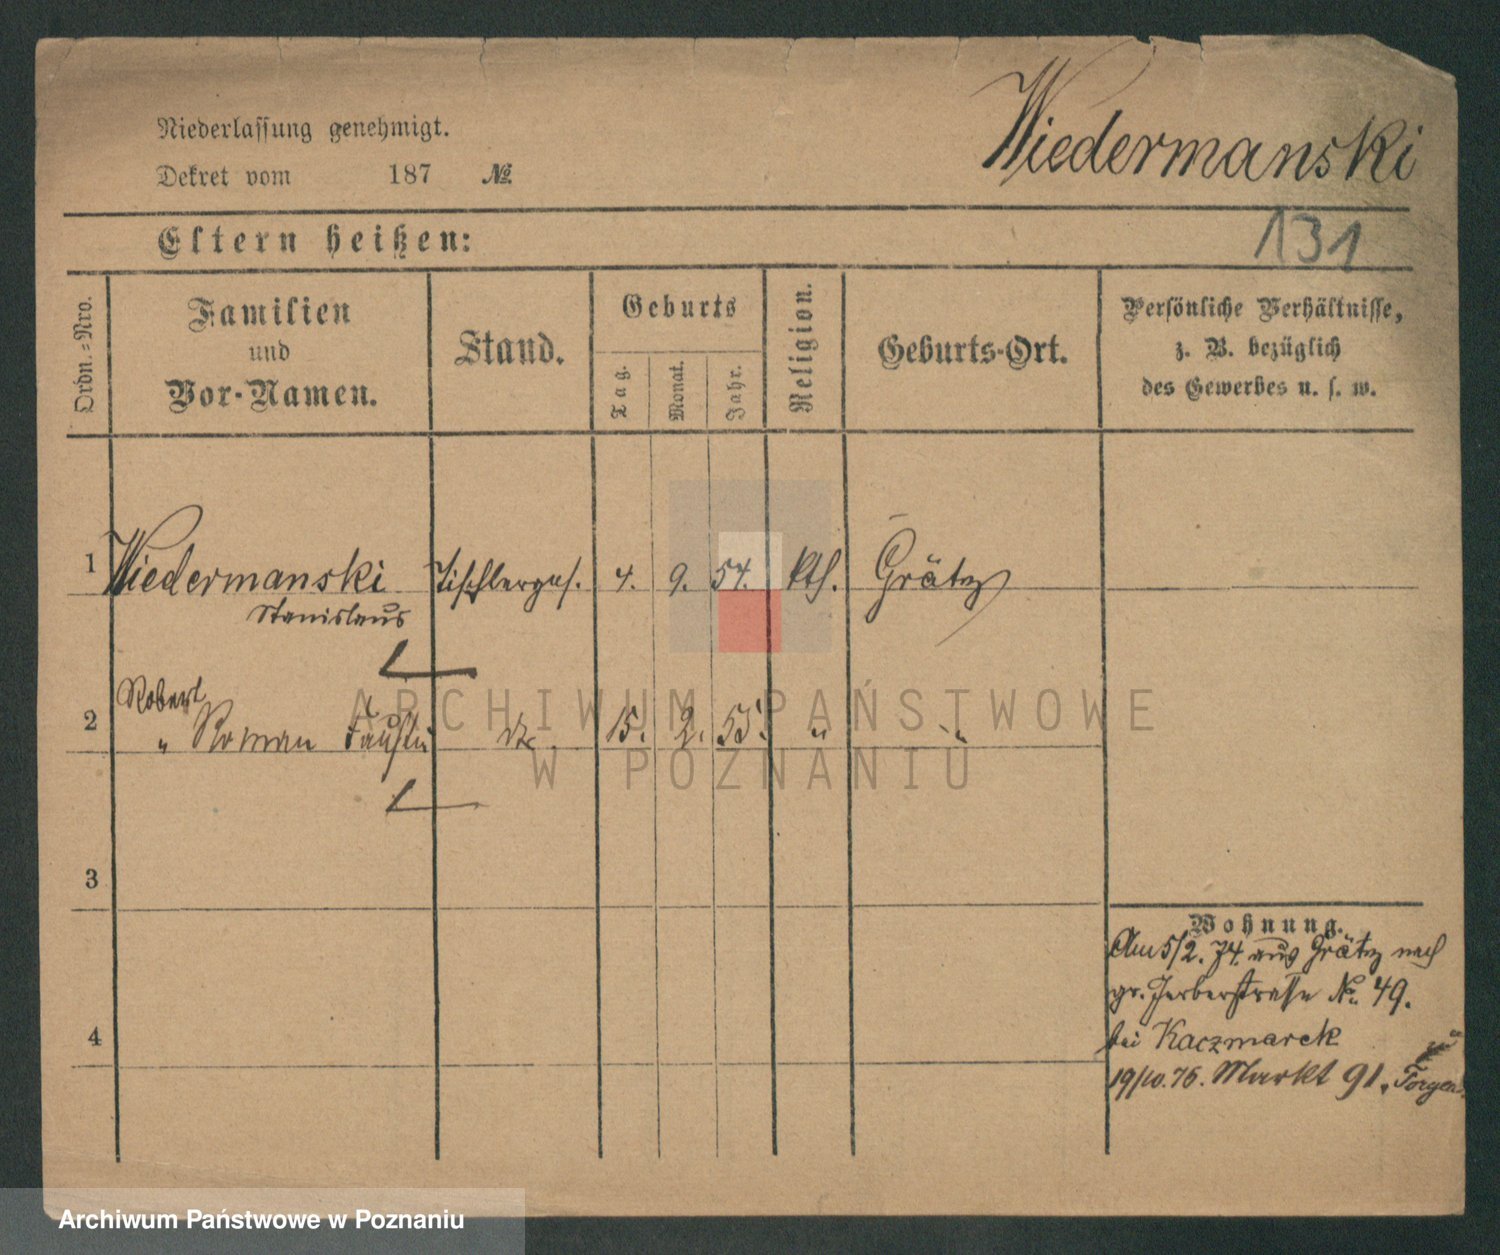 Niederlassung genehmigt.
Dekret vom 187 №
Wiedermanski
131
Eltern heißen:
Ordn.-Nro.
Familien
und
Vor-Namen.
Stand.
Geburts
Tag.
Monat.
Jahr.
Religion.
Geburts-Ort.
Persönliche Verhältnisse,
z. B. bezüglich
des Gewerbes u. s. w.
1 Wiedermanski Tischlerges. 4. 9. 54. kth. Grätz
Stanislaus
Robert
2 " Roman 15. 2. 55. " "
3
4
Wohnung.
Am 5/2. 74. aus Grätz nach
gr. Gerberstraße No. 49.
bei Kaczmarek
19/10. 76. Markt 91.
ARCHIWUM PAŃSTWOWE
W POZNANIU
Archiwum Państwowe w Poznaniu